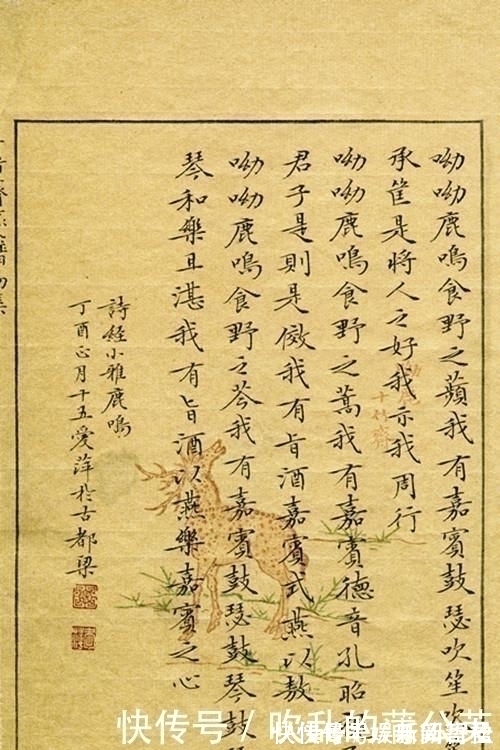 呦呦鹿鳴食野之蘋我有嘉賓鼓瑟吹笙吹
承筐是將人之好我示我周行
呦呦鹿鳴食野之蒿我有嘉賓德音孔昭
君子是則是傚我有旨酒嘉賓式燕以敖
呦呦鹿鳴食野之芩我有嘉賓鼓瑟鼓琴鼓
琴和樂且湛我有旨酒以燕樂嘉賓之心
詩經小雅鹿鳴
丁酉正月十五愛萍於古都梁
十竹齋
快传号 / 吹乱的蒲公英